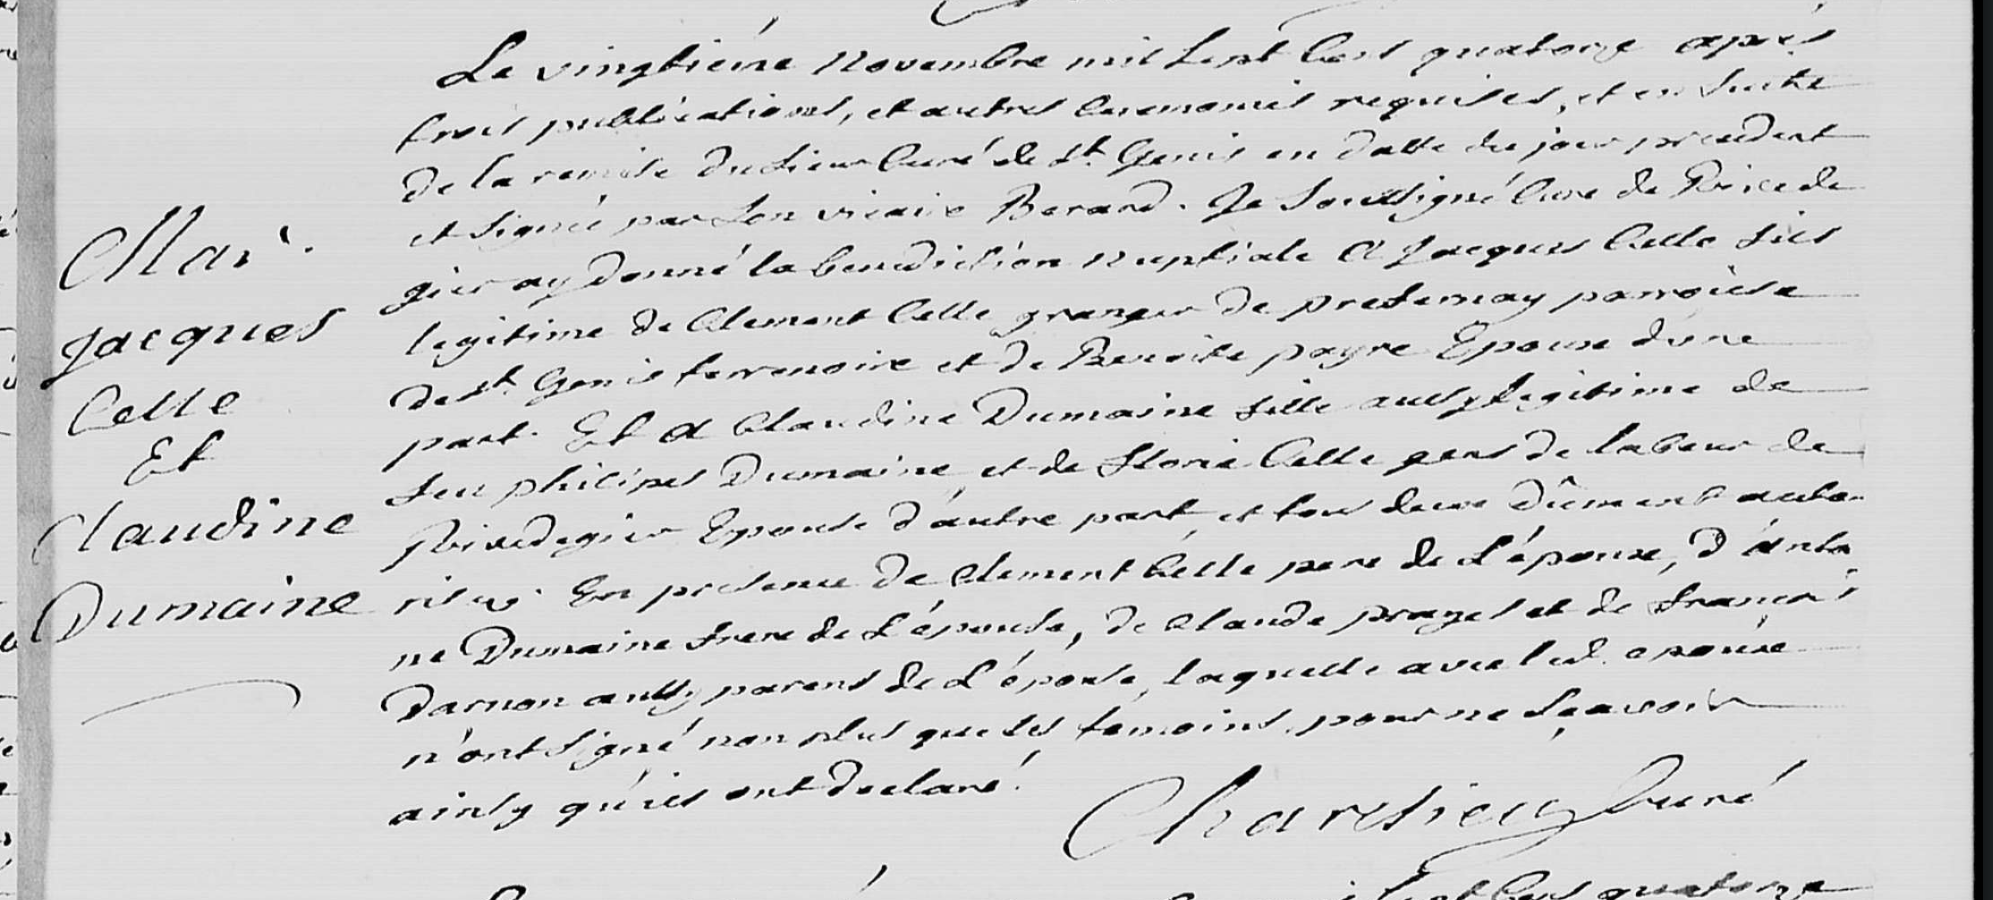 Le vingtiéme Novembre mil sept Cens quatorze aprés
trois publications, et autres Ceremonies requises, et en suite
de la remise du sieur Curé de St. Genis en datte du jour precedent
et signée par son vicaire Berard. Je soussigné Curé de Rive de
gier ay donné la benediction nuptiale A Jacques Celle fils
legitime de Clement Celle granger de parroisse
de St. Genis terrenoire et de Benoite payre Epoux d'une
part. Et A Claudine Dumaine fille aussy legitime de
feu philipes Dumaine et de Florie Celle gens de labeur de
Rivedegier Epouse d'autre part, et tous deux Dûment auto-
risés. En presence de Clement Celle pere de L'époux, d'Antoi-
ne Dumaine frere de L'épouse, de Claude et de François
Darnon aussy parens de L'épouse, laquelle avec led. epoux
n'ont signé non plus que les temoins, pour ne sçavoir
ainsy qu'ils ont declaré.
Mar.
Jacques
Celle
Et
Claudine
Dumaine
Curé
Cens quatorze